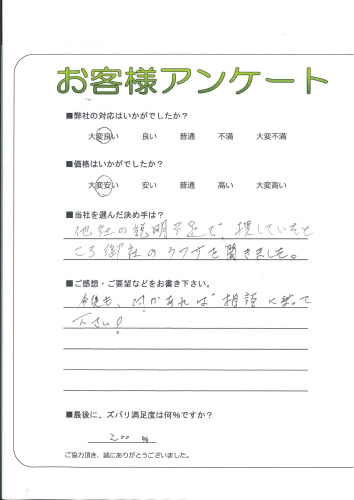 お客様アンケート
■弊社の対応はいかがでしたか？
大変良い 良い 普通 不満 大変不満
■価格はいかがでしたか？
大変安い 安い 普通 高い 大変高い
■当社を選んだ決め手は？
他社の説明不足で、探していたと
ころ御社のウワサを聞きました。
■ご感想・ご要望などをお書き下さい。
今後も、何かあれば相談に乗って
下さい！
■最後に、ズバリ満足度は何％ですか？
200 %
ご協力頂き、誠にありがとうございました。